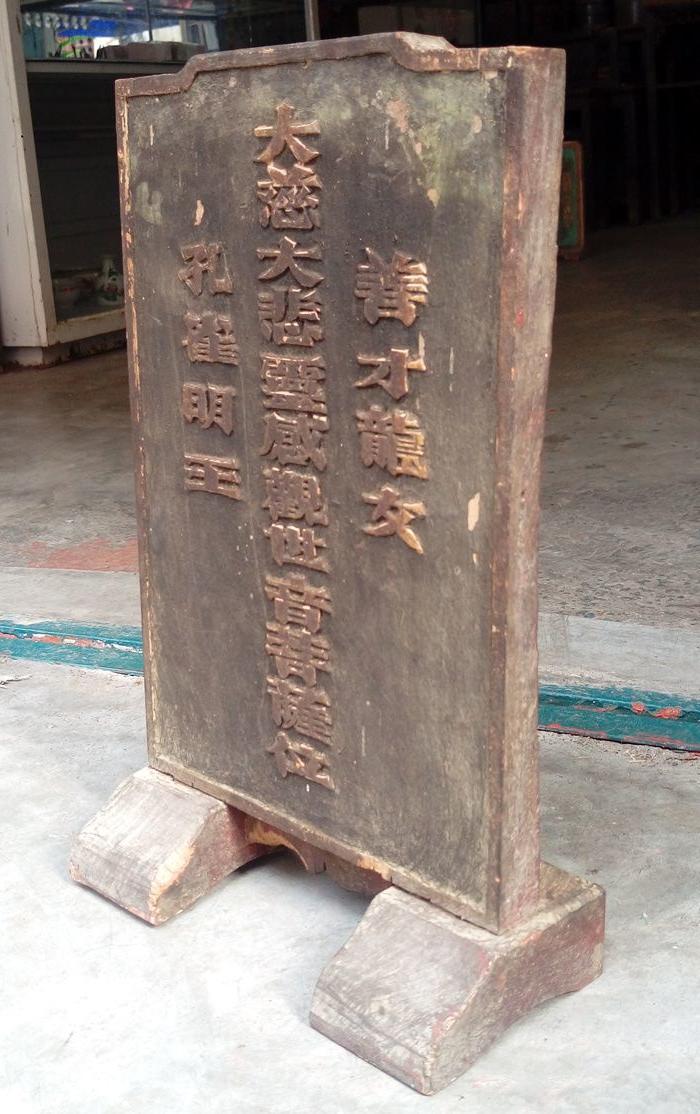 善才龍女
大慈大悲靈感觀世音菩薩位
孔雀明王